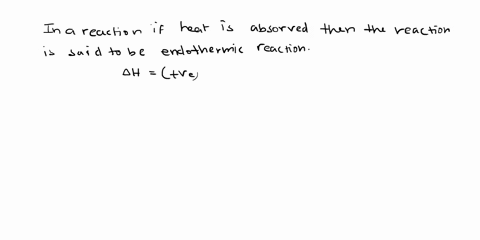 In a reaction if heat is absorved then the reaction
is said to be endothermic reaction.
ΔH = (+ve)